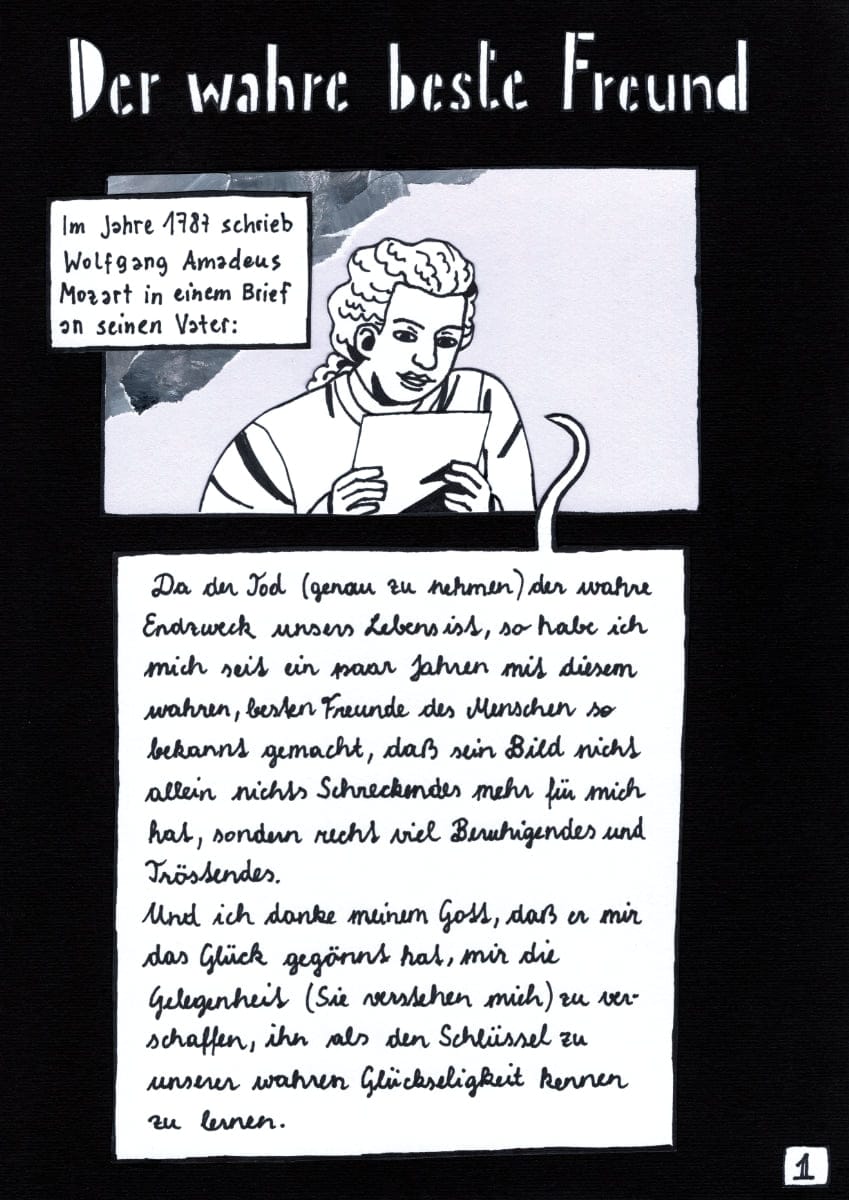 Der wahre beste Freund
Im Jahre 1787 schrieb
Wolfgang Amadeus
Mozart in einem Brief
an seinen Vater:
Da der Tod (genau zu nehmen) der wahre
Endzweck unsers Lebens ist, so habe ich
mich seit ein paar Jahren mit diesem
wahren, besten Freunde des Menschen so
bekannt gemacht, daß sein Bild nicht
allein nichts Schreckendes mehr für mich
hat, sondern recht viel Beruhigendes und
Tröstendes.
Und ich danke meinem Gott, daß er mir
das Glück gegönnt hat, mir die
Gelegenheit (Sie verstehen mich) zu ver-
schaffen, ihn als den Schlüssel zu
unserer wahren Glückseligkeit kennen
zu lernen.
1